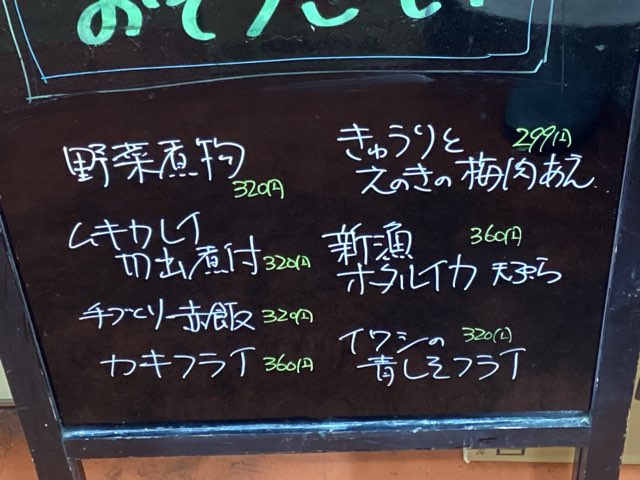 おそうざい
野菜煮物
320円
ムキカレイ
切出煮付 320円
手づくり赤飯 320円
カキフライ 360円
きゅうりと 299円
えのきの梅肉あえ
新漁 360円
ホタルイカ 天ぷら
イワシの 320円
青しそフライ